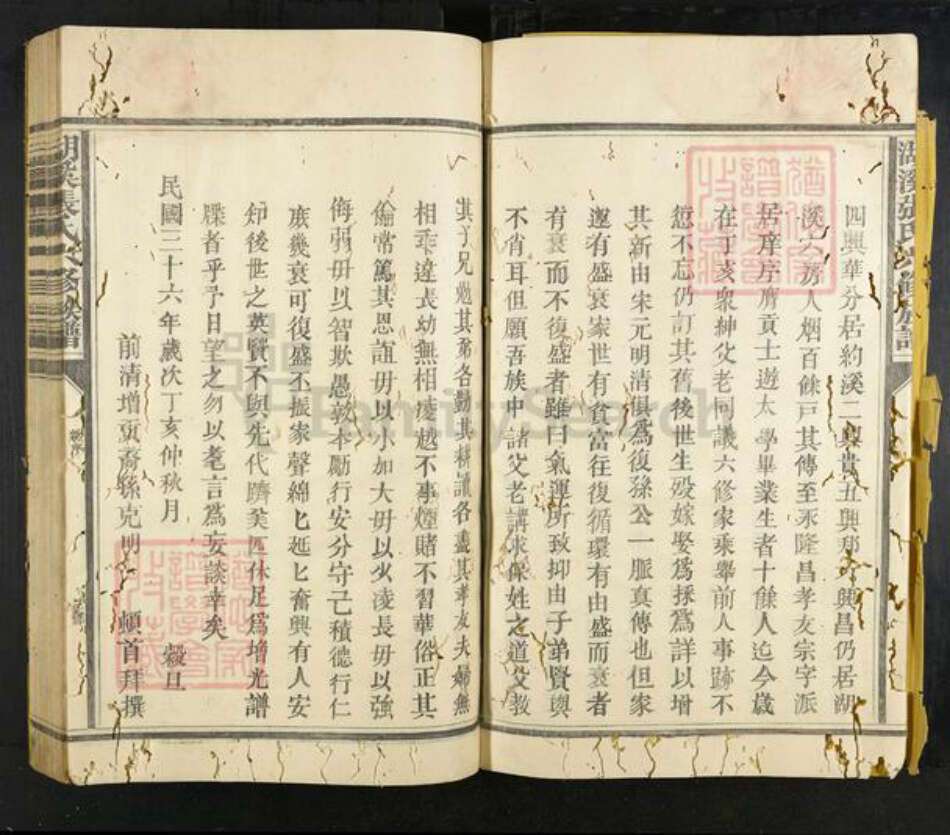 湖溪張氏六修族譜
四興華分居約溪二興貴五興邦六興昌仍居湖
溪六房人烟百餘戸其傳至永隆昌孝友宗字派
居庠序膺貢士遊太學畢業生者十餘人迄今歲
在丁亥衆紳父老同議六修家乘舉前人事跡不
愆不忘仍訂其舊後世生歿嫁娶爲採爲詳以增
其新由宋元明清俱爲復孫公一脈真傳也但家
運有盛衰家世有貧富往復循環有由盛而衰者
有衰而不復盛者雖曰氣運所致抑由子弟賢與
不肖耳但願吾族中諸父老講求保姓之道父教
其子兄勉其弟各勤其耕讀各盡其孝友夫婦無
相乖違長幼無相凌越不事煙賭不習華俗正其
倫常篤其恩誼毋以小加大毋以少凌長毋以強
侮弱毋以智欺愚敦本勵行安分守己積德行仁
庶幾衰可復盛丕振家聲綿匕延匕奮興有人安
知後世之英賢不與先代躋美匹休足爲增光譜
牒者乎予日望之勿以耄言爲妄談幸矣
民國三十六年歲次丁亥仲秋月 穀旦
前清增貢裔孫克明 頓首拜撰
湖溪張氏六修族譜
FamilySearch